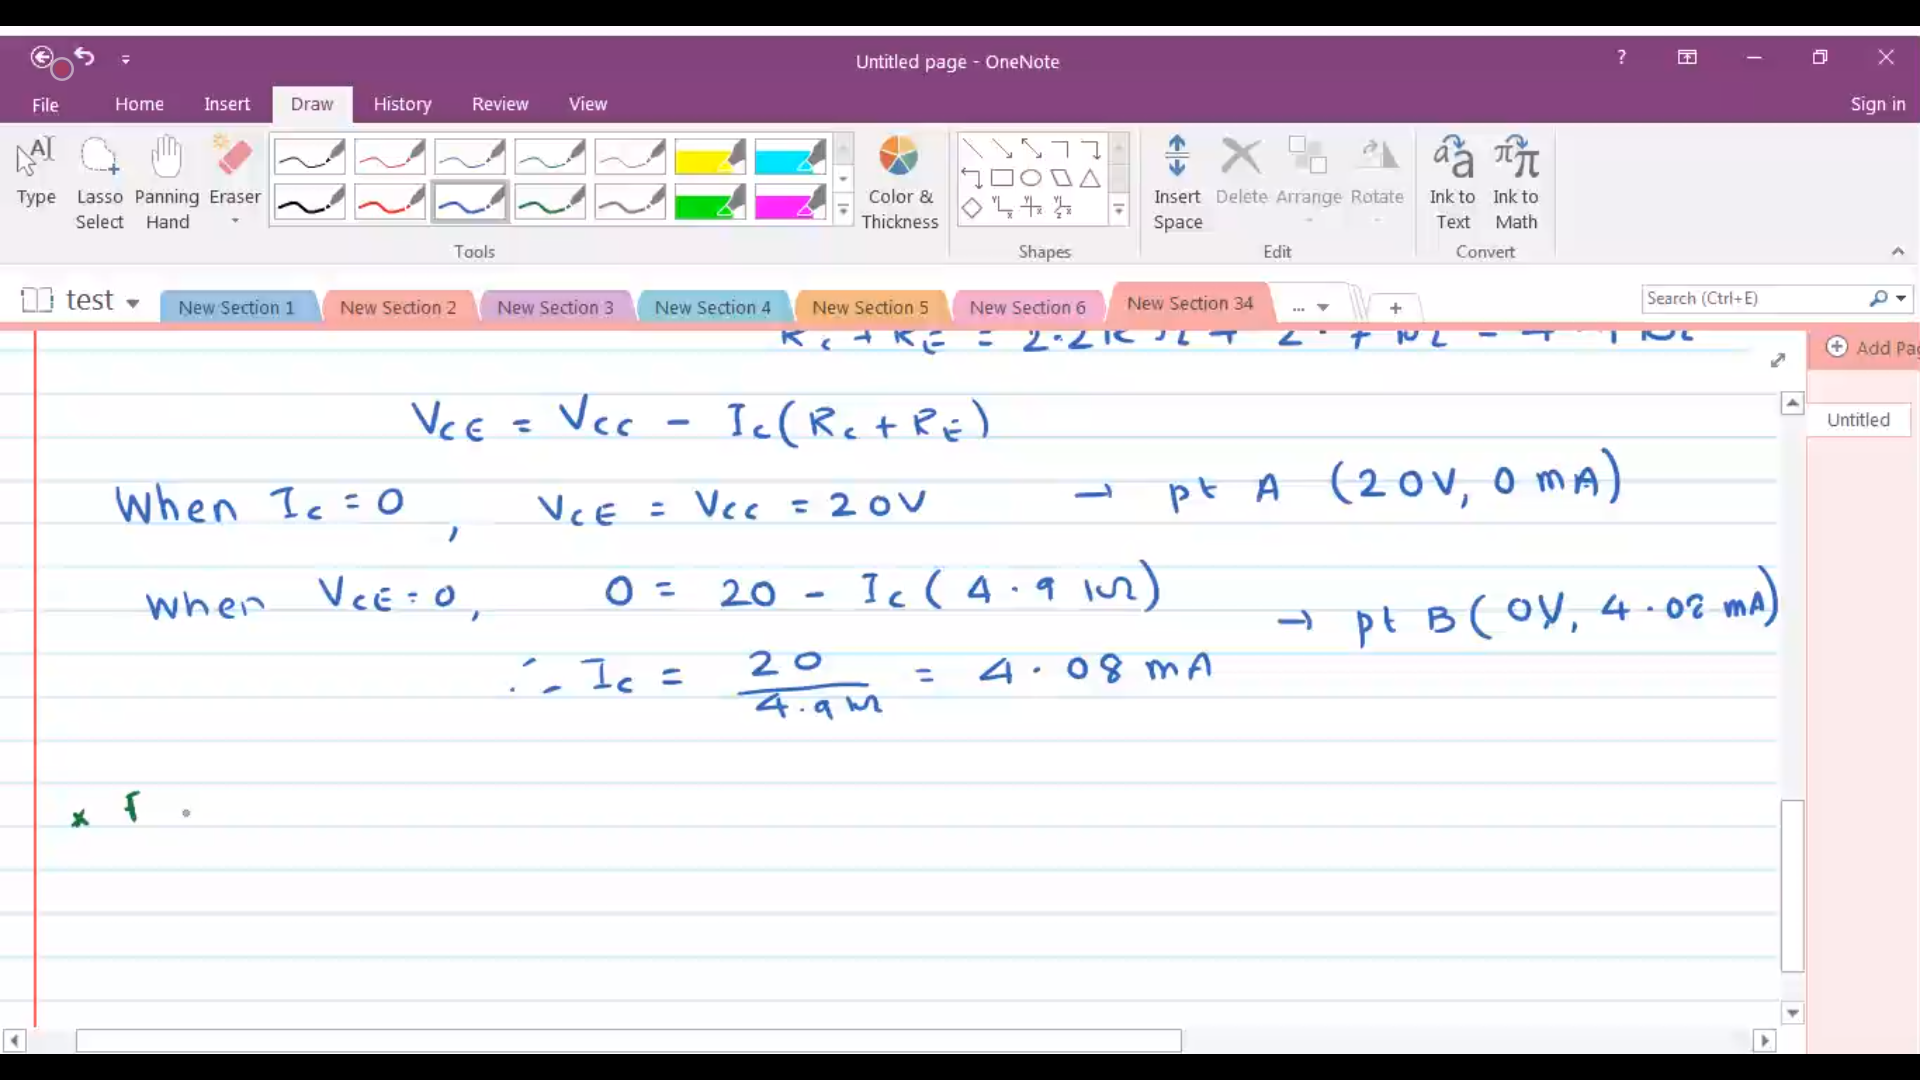 Untitled page - OneNote
?
File Home Insert Draw History Review View
Sign in
Type
Lasso Select
Panning Hand
Eraser
Color & Thickness
Insert Space
Delete
Arrange
Rotate
Ink to Text
Ink to Math
Tools
Shapes
Edit
Convert
test
New Section 1
New Section 2
New Section 3
New Section 4
New Section 5
New Section 6
New Section 34
...
Search (Ctrl+E)
Add Pag
Untitled
VCE = VCC - Ic(Rc + RE)
When Ic = 0, VCE = Vcc = 20V → pt A (20V, 0 mA)
When VCE = 0, 0 = 20 - Ic(4.9 kΩ) → pt B(0V, 4.08 mA)
∴ Ic = 20 / 4.9 kΩ = 4.08 mA
x